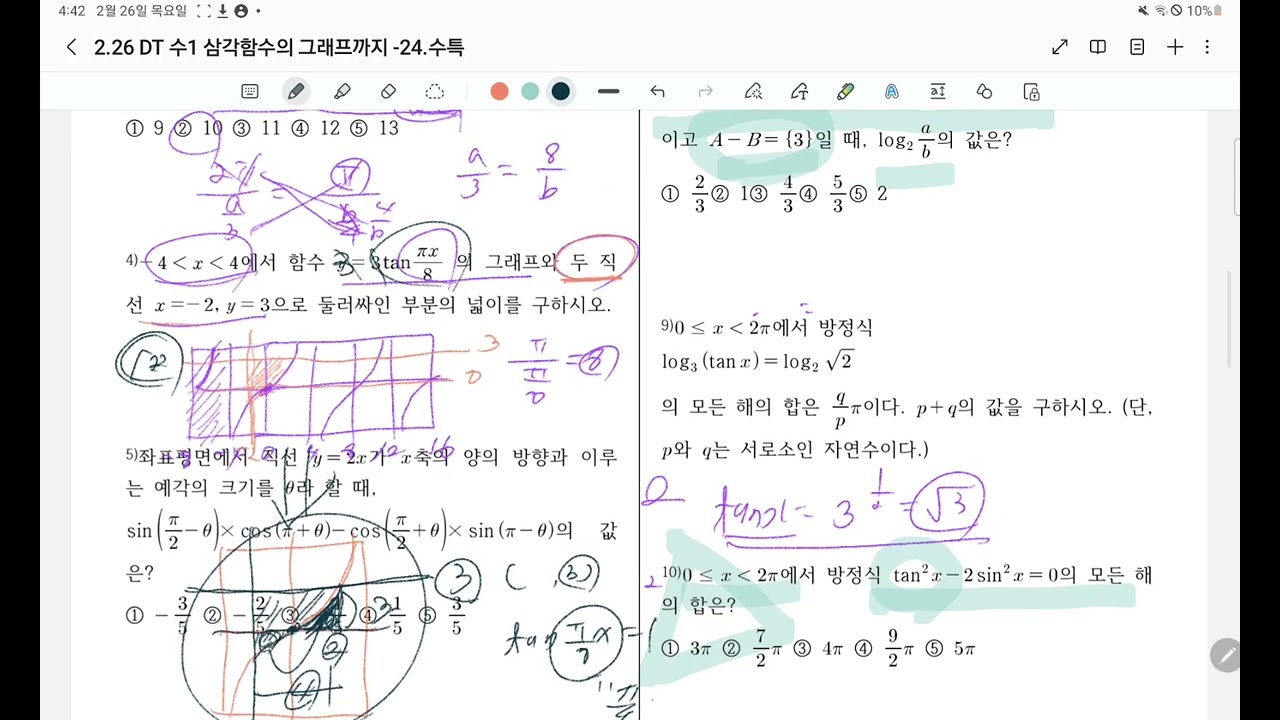 4:42 2월 26일 목요일
10%
2.26 DT 수1 삼각함수의 그래프까지 -24.수특
① 9 ② 10 ③ 11 ④ 12 ⑤ 13
a/3 = 8/b
4) -4 < x < 4에서 함수 y = 3tan πx/8 의 그래프와 두 직
선 x = -2, y = 3으로 둘러싸인 부분의 넓이를 구하시오.
3
0
5) 좌표평면에서 직선 y = 2x가 x축의 양의 방향과 이루
는 예각의 크기를 θ라 할 때,
sin(π/2 - θ) × cos(π + θ) - cos(π/2 + θ) × sin(π - θ)의 값
은?
① -3/5 ② -2/5 ③ ④ 1/5 ⑤ 3/5
이고 A - B = {3}일 때, log₂ a/b의 값은?
① 2/3 ② 1 ③ 4/3 ④ 5/3 ⑤ 2
9) 0 ≤ x < 2π에서 방정식
log₃(tan x) = log₂ √2
의 모든 해의 합은 q/p π이다. p + q의 값을 구하시오. (단,
p와 q는 서로소인 자연수이다.)
tanx = 3^(1/2) = √3
10) 0 ≤ x < 2π에서 방정식 tan²x - 2sin²x = 0의 모든 해
의 합은?
① 3π ② 7/2 π ③ 4π ④ 9/2 π ⑤ 5π